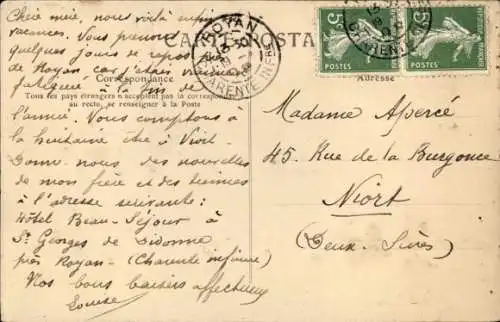 Chère mère, nous voilà enfin
vacances. Vous prenons
quelques jours de repos
de Royan car j'étais vraiment
fatiguée à la fin de
l'année. Nous comptons à
la huitaine être à Niort.
Donne-nous des nouvelles
de mon frère et des siennes
à l'adresse suivante :
Hôtel Beau-Séjour à
St Georges de Didonne
près Royan - (Charente inférieure)
Nos bons baisers affectueux
Louise
CARTE POSTALE
Correspondance
Tous les pays étrangers n'acceptent pas la correspondance
au recto, se renseigner à la Poste
ROYAN
CHARENTE INFRE
Adresse
5
5
Madame Apercé
45. Rue de la Burgonce
Niort
(Deux-Sèvres)